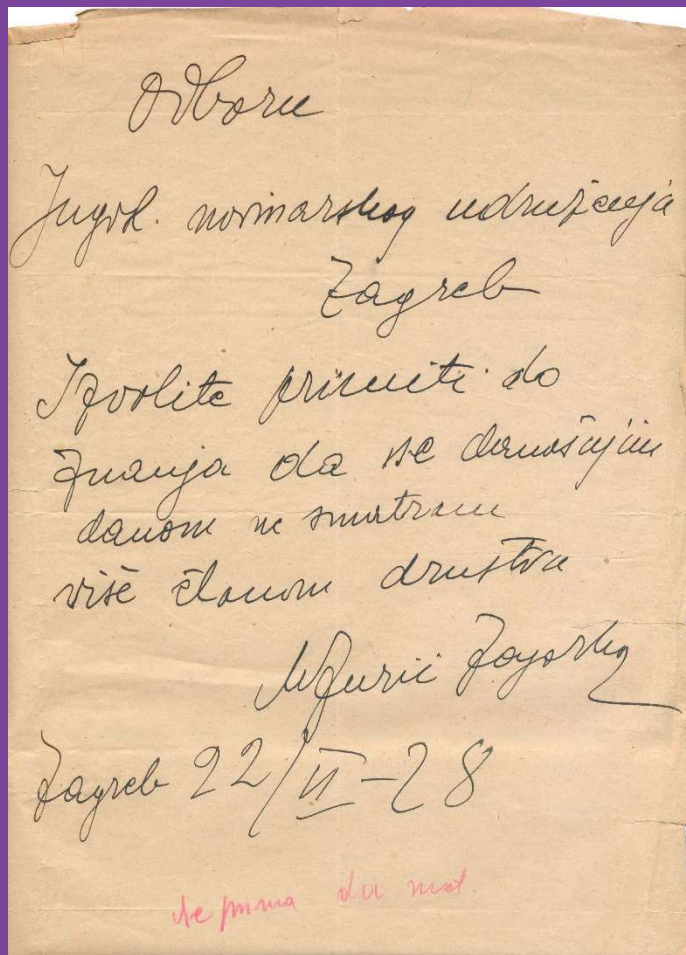 Odboru
Jugosl. novinarskog udruženja
Zagreb
Izvolite primiti do
znanja da se današnjim
danom ne smatram
više članom društva
MJurić Zagorka
Zagreb 22/II-28
Ne prima